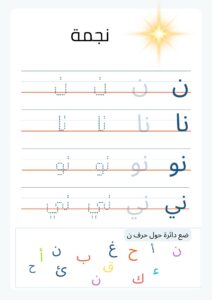 نجمة
ن ن ن ن
نا نا نا نا
نو نو نو نو
ني ني ني ني
ضع دائرة حول حرف ن
ن أ ح غ ب ن أ
ء ك ق ن ئ ح